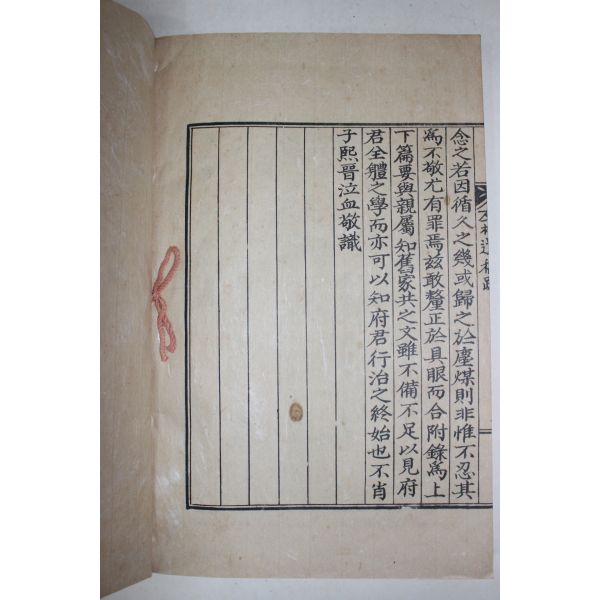 念之若因循久之幾或歸之於塵煤則非惟不忍其
爲不敬尤有罪焉茲敢釐正於具眼而合附錄爲上
下篇要與親屬知舊家共之文雖不備不足以見府
君全體之學而亦可以知府君行治之終始也不肖
子熙晉泣血敬識